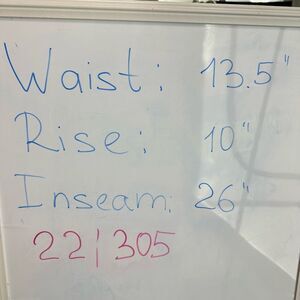 Waist: 13.5"
Rise: 10"
Inseam: 26"
22|305